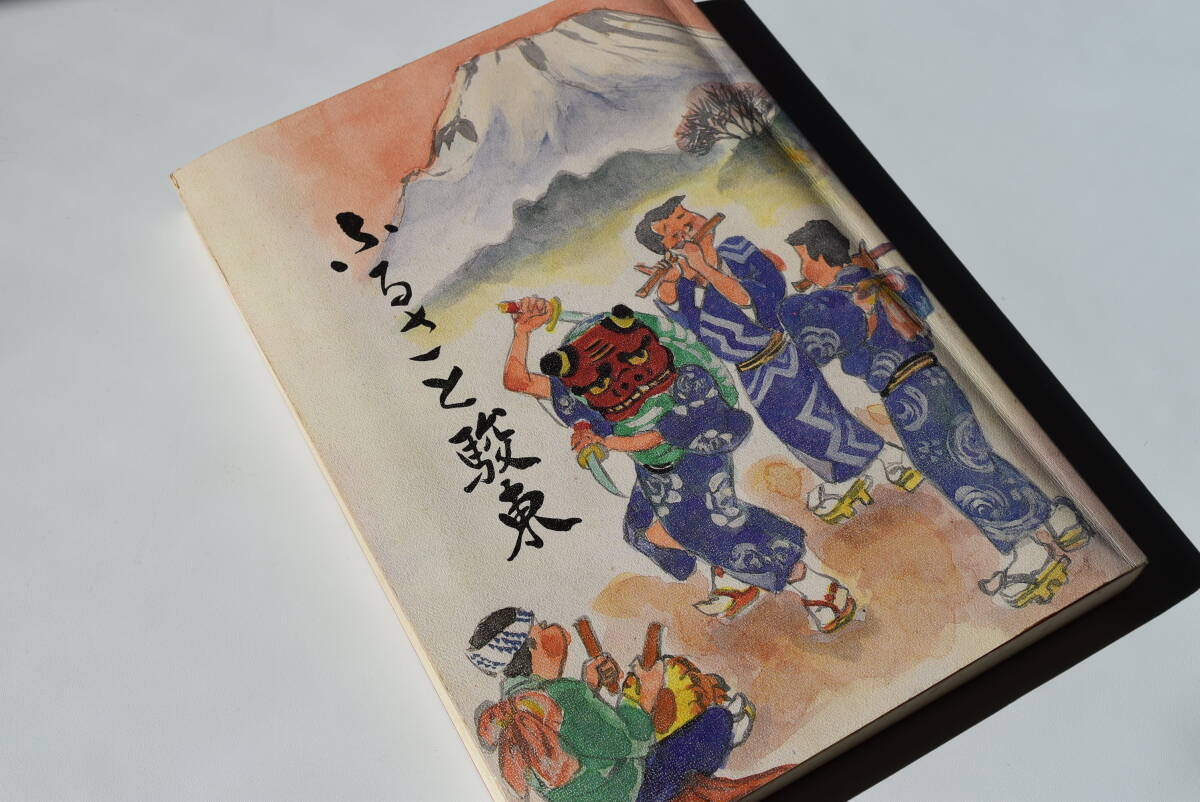 ふるさと駿東